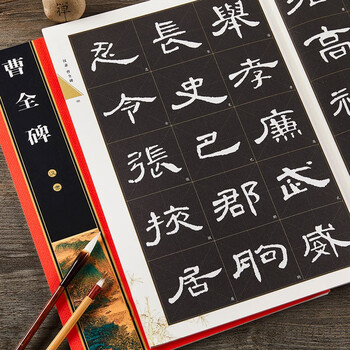 曹全碑
高
舉孝廉武威
長史巴郡朐
忍令張掖居